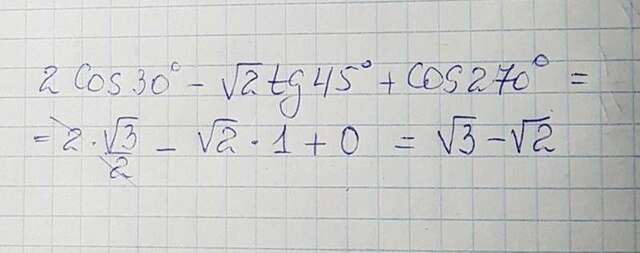 2 cos 30° - √2 tg 45° + cos 270° =
= 2 · √3/2 - √2 · 1 + 0 = √3 - √2